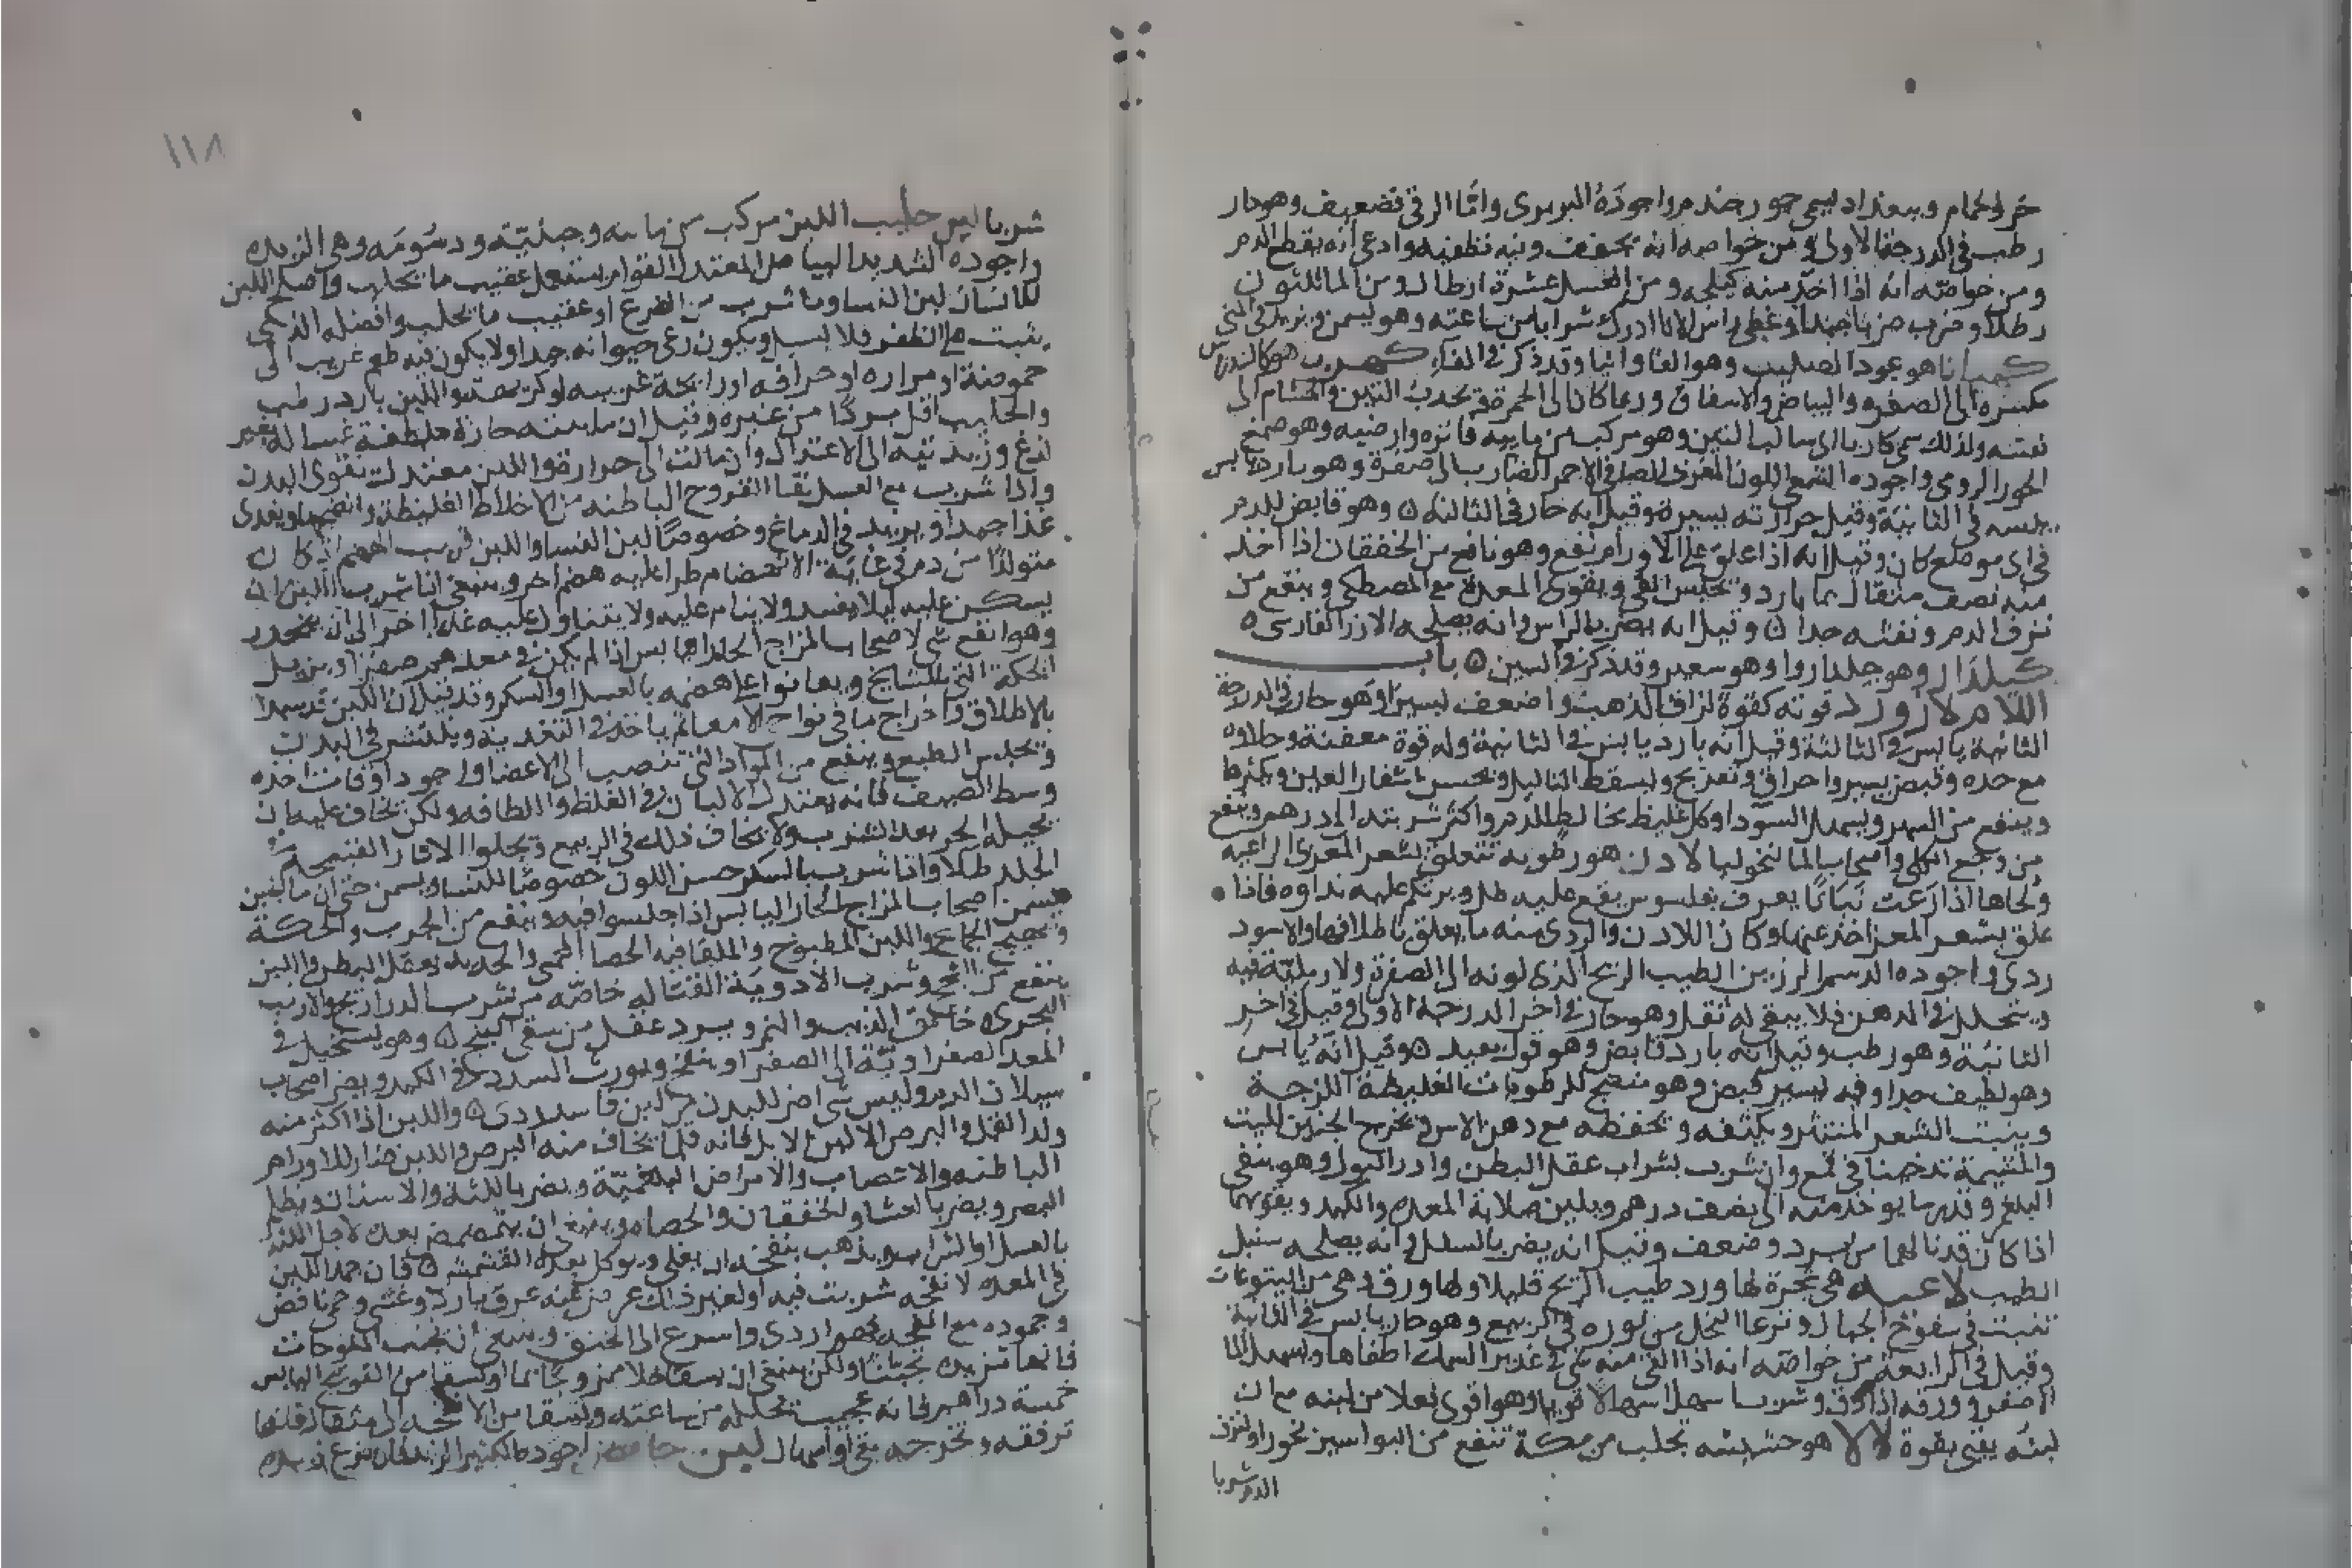 خرو الحمام وببغداد يسمى جوز جندم واجوده البربرى واما الرقى فضعيف وهو حار
رطب فى الدرجة الاولى ومن خواصه انه يجفف وفيه تطفيه وادعى انه يقطع الدم
ومن خواصه انه اذا اخذ منه كيلجه ومن العسل عشرة ارطال ومن الماء ثلثون
رطلا وضرب ضربا جيدا وغطى راس الاناء ادرك شرابا من ساعته وهو يسمن ويزيد فى المنى
كهيانا هو عود الصليب وهو الفاوانيا وقد ذكر فى الفاء كهربا هو كالسندروس
مكسره الى الصفره والبياض والاشفاف وربما كان الى الحمرة يجذب التبن والهشام الى
نفسه ولذلك سمى كاربا اى سالب التبن وهو مركب من مايية فاترة وارضيه وهو صمغ
الجوز الرومى واجوده الشمعى اللون المغربى الصافى الاحمر الضارب الى صفرة وهو بارد يابس
يبسه فى الثانية وقيل حرارته يسيرة وقيل انه حار فى الثالثة وهو قابض للدم
فى اى موضع كان وقيل انه اذا علق على الاورام نفع وهو نافع من الخفقان اذا اخذ
منه نصف مثقال بماء بارد ويحبس القى ويقوى المعدة مع المصطكى وينفع من
نزف الدم ونفثه جدا وقيل انه يضر بالراس وانه يصلحه الارز الفارسى
كيلدارو هو جلدارو وهو سعبر وقد ذكر فى السين باب
اللام لازورد قوته كقوة لزاق الذهب واضعف يسيرا وهو حار فى الدرجة
الثانية يابس فى الثالثة وقيل انه بارد يابس فى الثانية وله قوة معفنة وجلاوه
مع حده وقبض يسير واحراق وتقريح ويسقط الثاليل ويحسن اشفار العين ويكثرها
وينفع من السهر ويسهل السودا وكل غليظ يخالط الدم واكثر شربته الى درهم وينفع
من وجع الكلى واصحاب المالنخوليا لادن هو رطوبه تتعلق بشعر المعزى الراعيه
ولحاها اذا رعت نباتا يعرف بقلسوس يقع عليه طل ويرتكم عليه نداوه فاذا
علق بشعر المعز اخذ عنها وكان اللادن والردى منه ما يعلق باظلافها والاسود
ردى واجوده الدسم الرزين الطيب الريح الذى لونه الى الصفرة ولا رملية فيه
ويتحلل فى الدهن فلا يبقى له ثفل وهو حار فى اخر الدرجه الاولى وقيل فى اخر
الثانية وهو رطب وقيل انه بارد قابض وهو قول بعيد وقيل انه يابس
وهو لطيف جدا وفيه يسير قبض وهو منضج للرطوبات الغليظة اللزجة
وينبت الشعر المنتثر ويكثفه ويحفظه مع دهن الاس ويخرج الجنين الميت
والمشيمة تدخينا فى قمع وان شرب بشراب عقل البطن وادر البول وهو ينقى
البلغم وقدر ما يوخذ منه الى نصف درهم ويلين صلابة المعده والكبد ويقويهما
اذا كان قد نالهما من برد وضعف وقيل انه يضر بالسفل وانه يصلحه سنبل
الطيب لاعيه هى شجرة لها ورد طيب الريح قليلا ولها ورق وهى من اليتوعات
تنبت فى سفوح الجبال وترعا النحل من نوره فى الربيع وهو حار يابس فى الثانية
وقيل فى الرابعة من خواصه انه اذا القى منه شى فى غدير السمك اطفاها ويسهل الما
الاصفر وورقه اذا دق وشرب اسهل اسهالا قويا وهو اقوى فعلا من لبنه مع ان
لبنه يقى بقوة لالا هو حشيشه تجلب من مكة تنفع من البواسير بخورا ولنزف
الدم شربا
١١٨
شربا لبن حليب اللبن مركب من مائيه وجبنيه ودسومه وهى الزبده
واجوده الشديد البياض المعتدل القوام يستعمل عقيب ما يحلب واصلح اللبن
للانسان لبن النسا وما شرب من الضرع او عقيب ما يحلب وافضله الذى
يثبت على الظفر فلا يسيل ويكون رعى حيوانه جيدا ولا يكون فيه طعم غريب الى
حموضة او مراره او حرافه او رائحة غريبه او كريهة واللبن بارد رطب
والحليب اقل بردا من غيره وقيل ان مائيته حارة ملطفة غساله بغير
لذع وزبديته الى الاعتدال وان مالت الى حرارة واللبن معتدل يقوى البدن
واذا شرب مع العسل نقا القروح الباطنه من الاخلاط الغليظة وانضجها ويغذى
غذا جيدا ويزيد فى الدماغ وخصوصا لبن النسا واللبن قريب الهضم اذ كان
متولدا من دم فى غاية الانهضام طرا عليه هضم اخر وينبغى اذا شرب اللبن ان
يسكن عليه ليلا يفسد ولا ينام عليه ولا يتناول عليه غذا اخر الى ان ينحدر
وهو انفع شى لاصحاب المزاج الحار اليابس اذا لم يكن فى معدهم صفرا ويزيل
الحكة التى للمشايخ ويعانوا على هضمه بالعسل او السكر وقد قيل ان اللبن قد يبدا
بالاطلاق واخراج ما فى نواحى الامعا ثم ياخذ فى التغذيه وينتشر فى البدن
ويحبس الطبع وينفع من المواد التى تنصب الى الاعضا واجود اوقات اخذه
وسط الصيف فانه يعتدل الالبان فى الغلظ واللطافه ولكن يخاف عليه ان
يحيله الحر بعد الشرب ولا يخاف ذلك فى الربيع ويجلوا الاثار القبيحه فى
الجلد طلا واذا شرب بالسكر حسن اللون خصوصا للنسا ويسمن حتى ان ما الجبن
يسمن اصحاب المزاج الحار اليابس اذا جلسوا فيه وينفع من الجرب والحكة
ويهيج الجماع واللبن المطبوخ والملقا فيه الحصا المحمى والحديد يعقل البطن واللبن
ينفع من السحج وشرب الادوية القتاله خاصه من شرب الدراريح والارنب
البحرى وخانق الذيب والنمر ويرد عقل من سقى البنج وهو يستحيل فى
المعد الصفراويه الى الصفرا وينفخ ويورث السدد فى الكبد ويضر اصحاب
سيلان الدم وليس شى اضر للبدن من لبن فاسد ردى واللبن اذا اكثر منه
ولد القمل والبرص الا لبن الابل فانه قل ما يخاف منه البرص واللبن ضار للاورام
الباطنه والاعصاب والامراض البلغميه ويضر باللثة والاسنان وبظلمة
البصر ويضر بالعشا والخفقان والحصاه وينبغى ان يتمضمض بعده لاجل اللثة
بالعسل او الشراب ويذهب بنفخه ان يغلى ويوكل بعده القشمش فان جمد اللبن
فى المعده لانفحه شربت فيه او لغير ذلك عرض عنه عرق بارد وغشى وحمى نافض
وجموده مع انفحه فهو اردى واسرع الى الخنق وينبغى ان يجنب الملوحات
فانها تزيده تجبنا ولكن ينبغى ان يسقا خلا ممزوجا بما او يسقا من الفوتنج اليابس
خمسة دراهم فانه عجيب يحلله من ساعته ويسقا من الانفحه الى مثقال فانها
ترققه وتخرجه بقى او اسهال لبن حامض اجوده الكثير الزبد فان نزع زبده